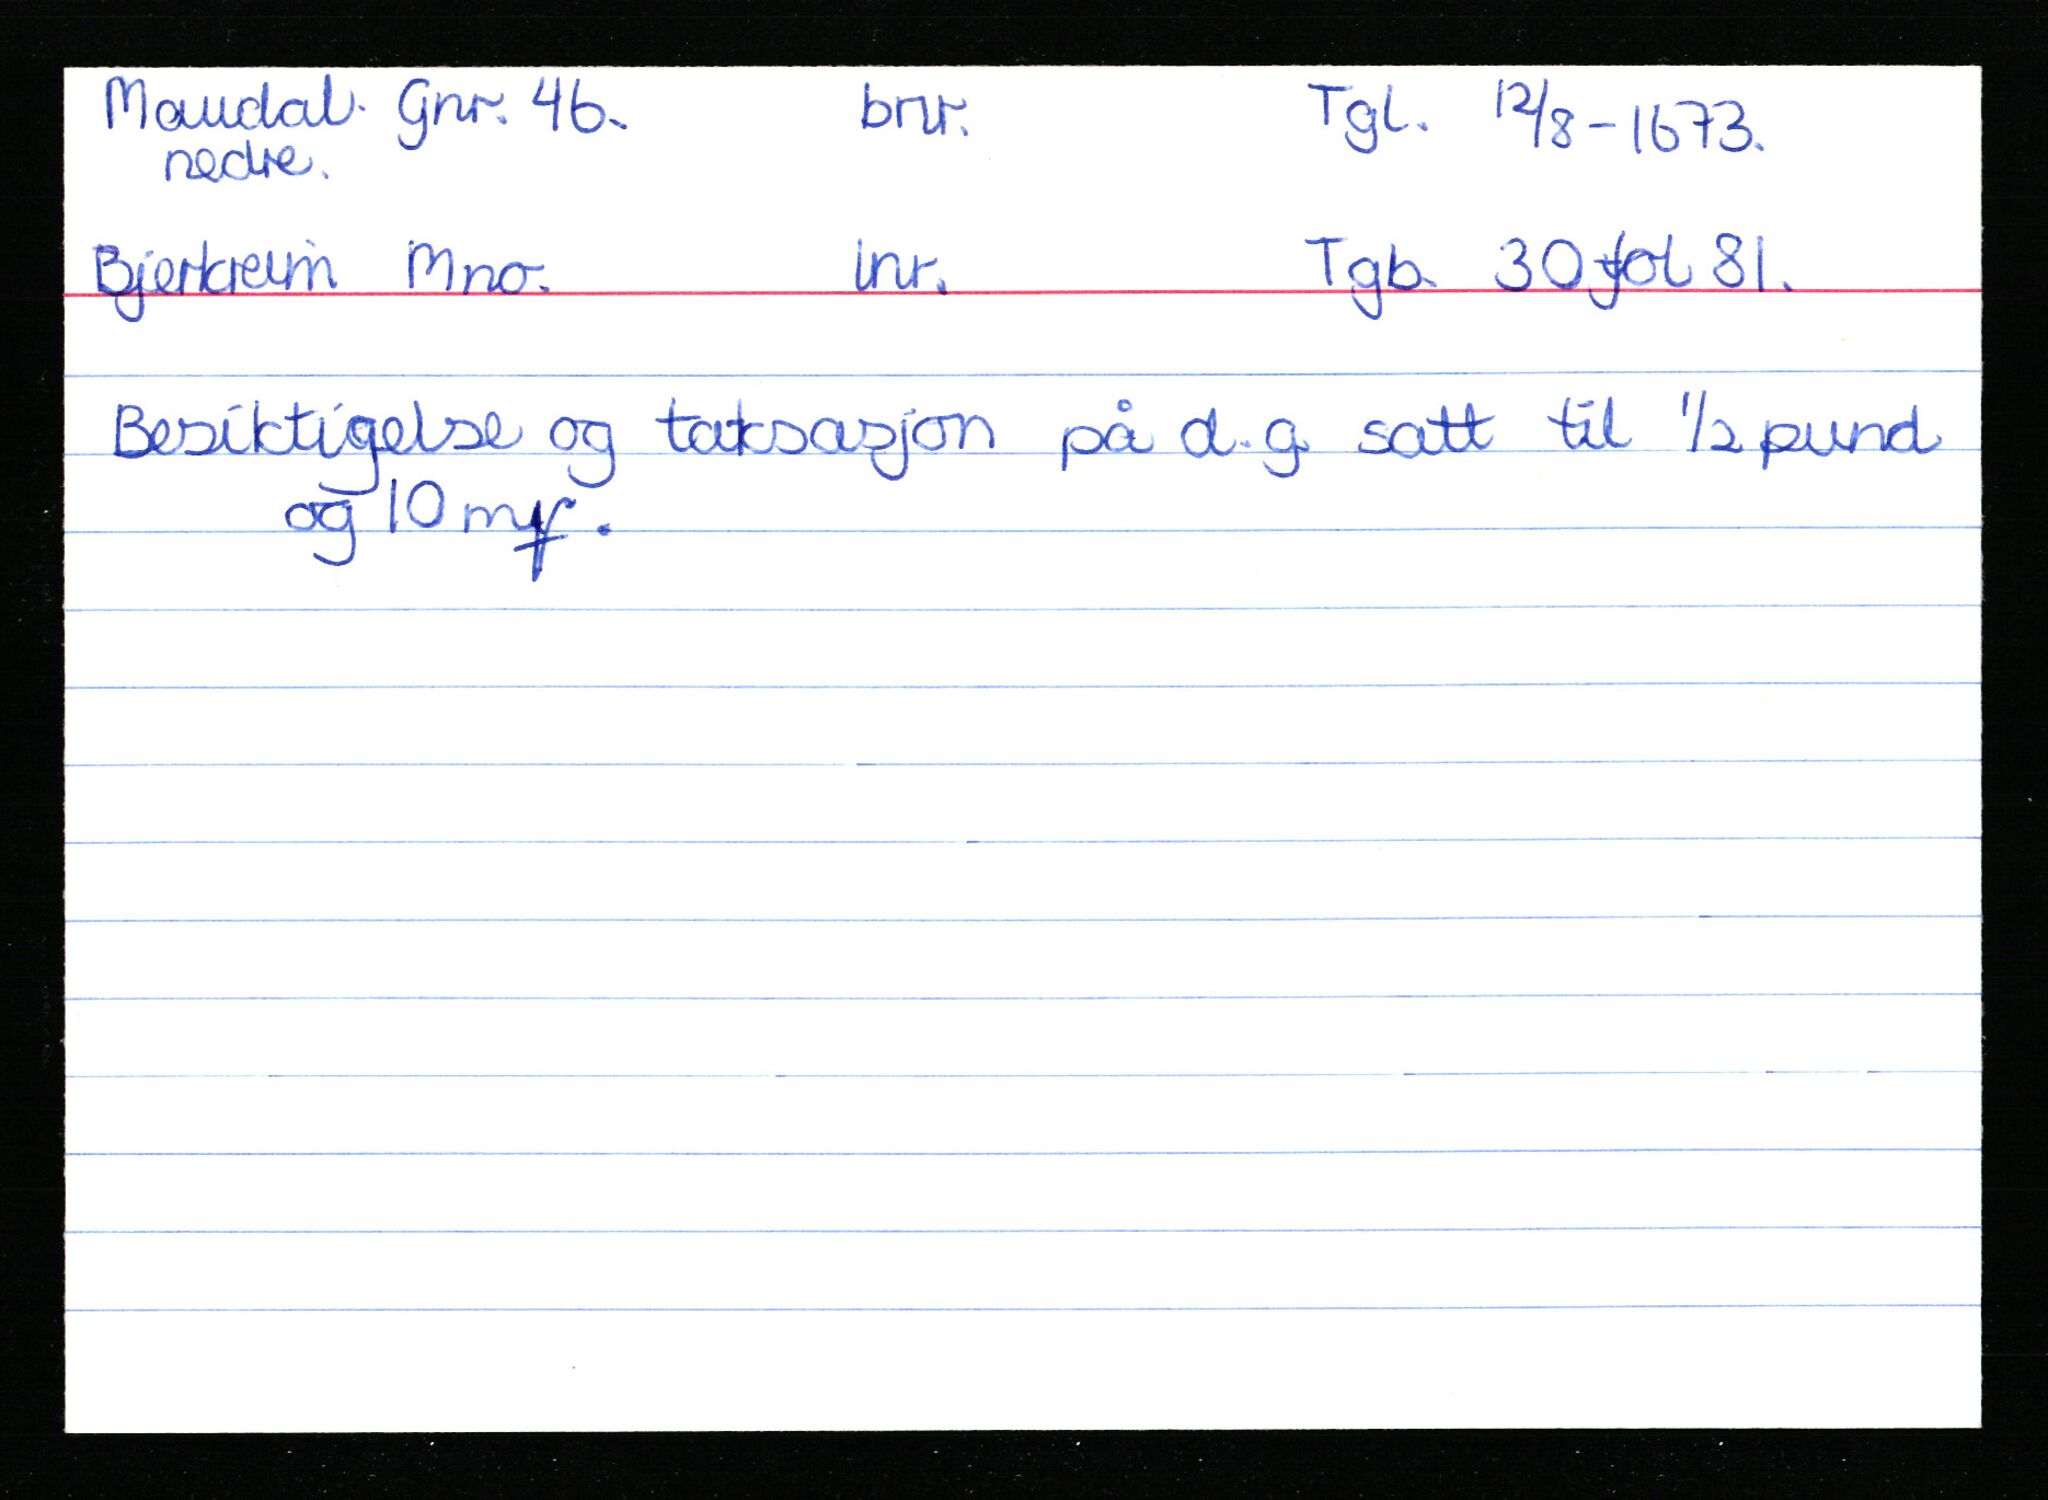 Maudal. Gnr. 46. brnr. Tgl. 12/8-1673.
nedre.
Bjerkreim Mno. lnr. Tgb. 30 fol 81.
Besiktigelse og taksasjon på d.g. satt til 1/2 pund
og 10